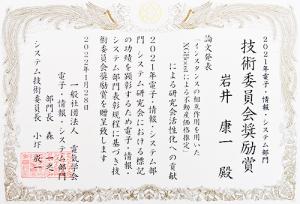 2021年電子・情報・システム部門
技術委員会奨励賞
岩井 康一 殿
論文発表
「インスタンスの相互作用を用いた
XGBoostによる不動産価格推定」
による研究会活性化への貢献
2021年電子・情報・システム部
門システム研究会における標記
の功績を顕彰するため電子・情報・
システム部門表彰規程に基づき技
術委員会奨励賞を贈呈致します
2022年1月28日
一般社団法人 電気学会
電子・情報・システム部門
部門長 森 一之
システム技術委員長 小圷 成一